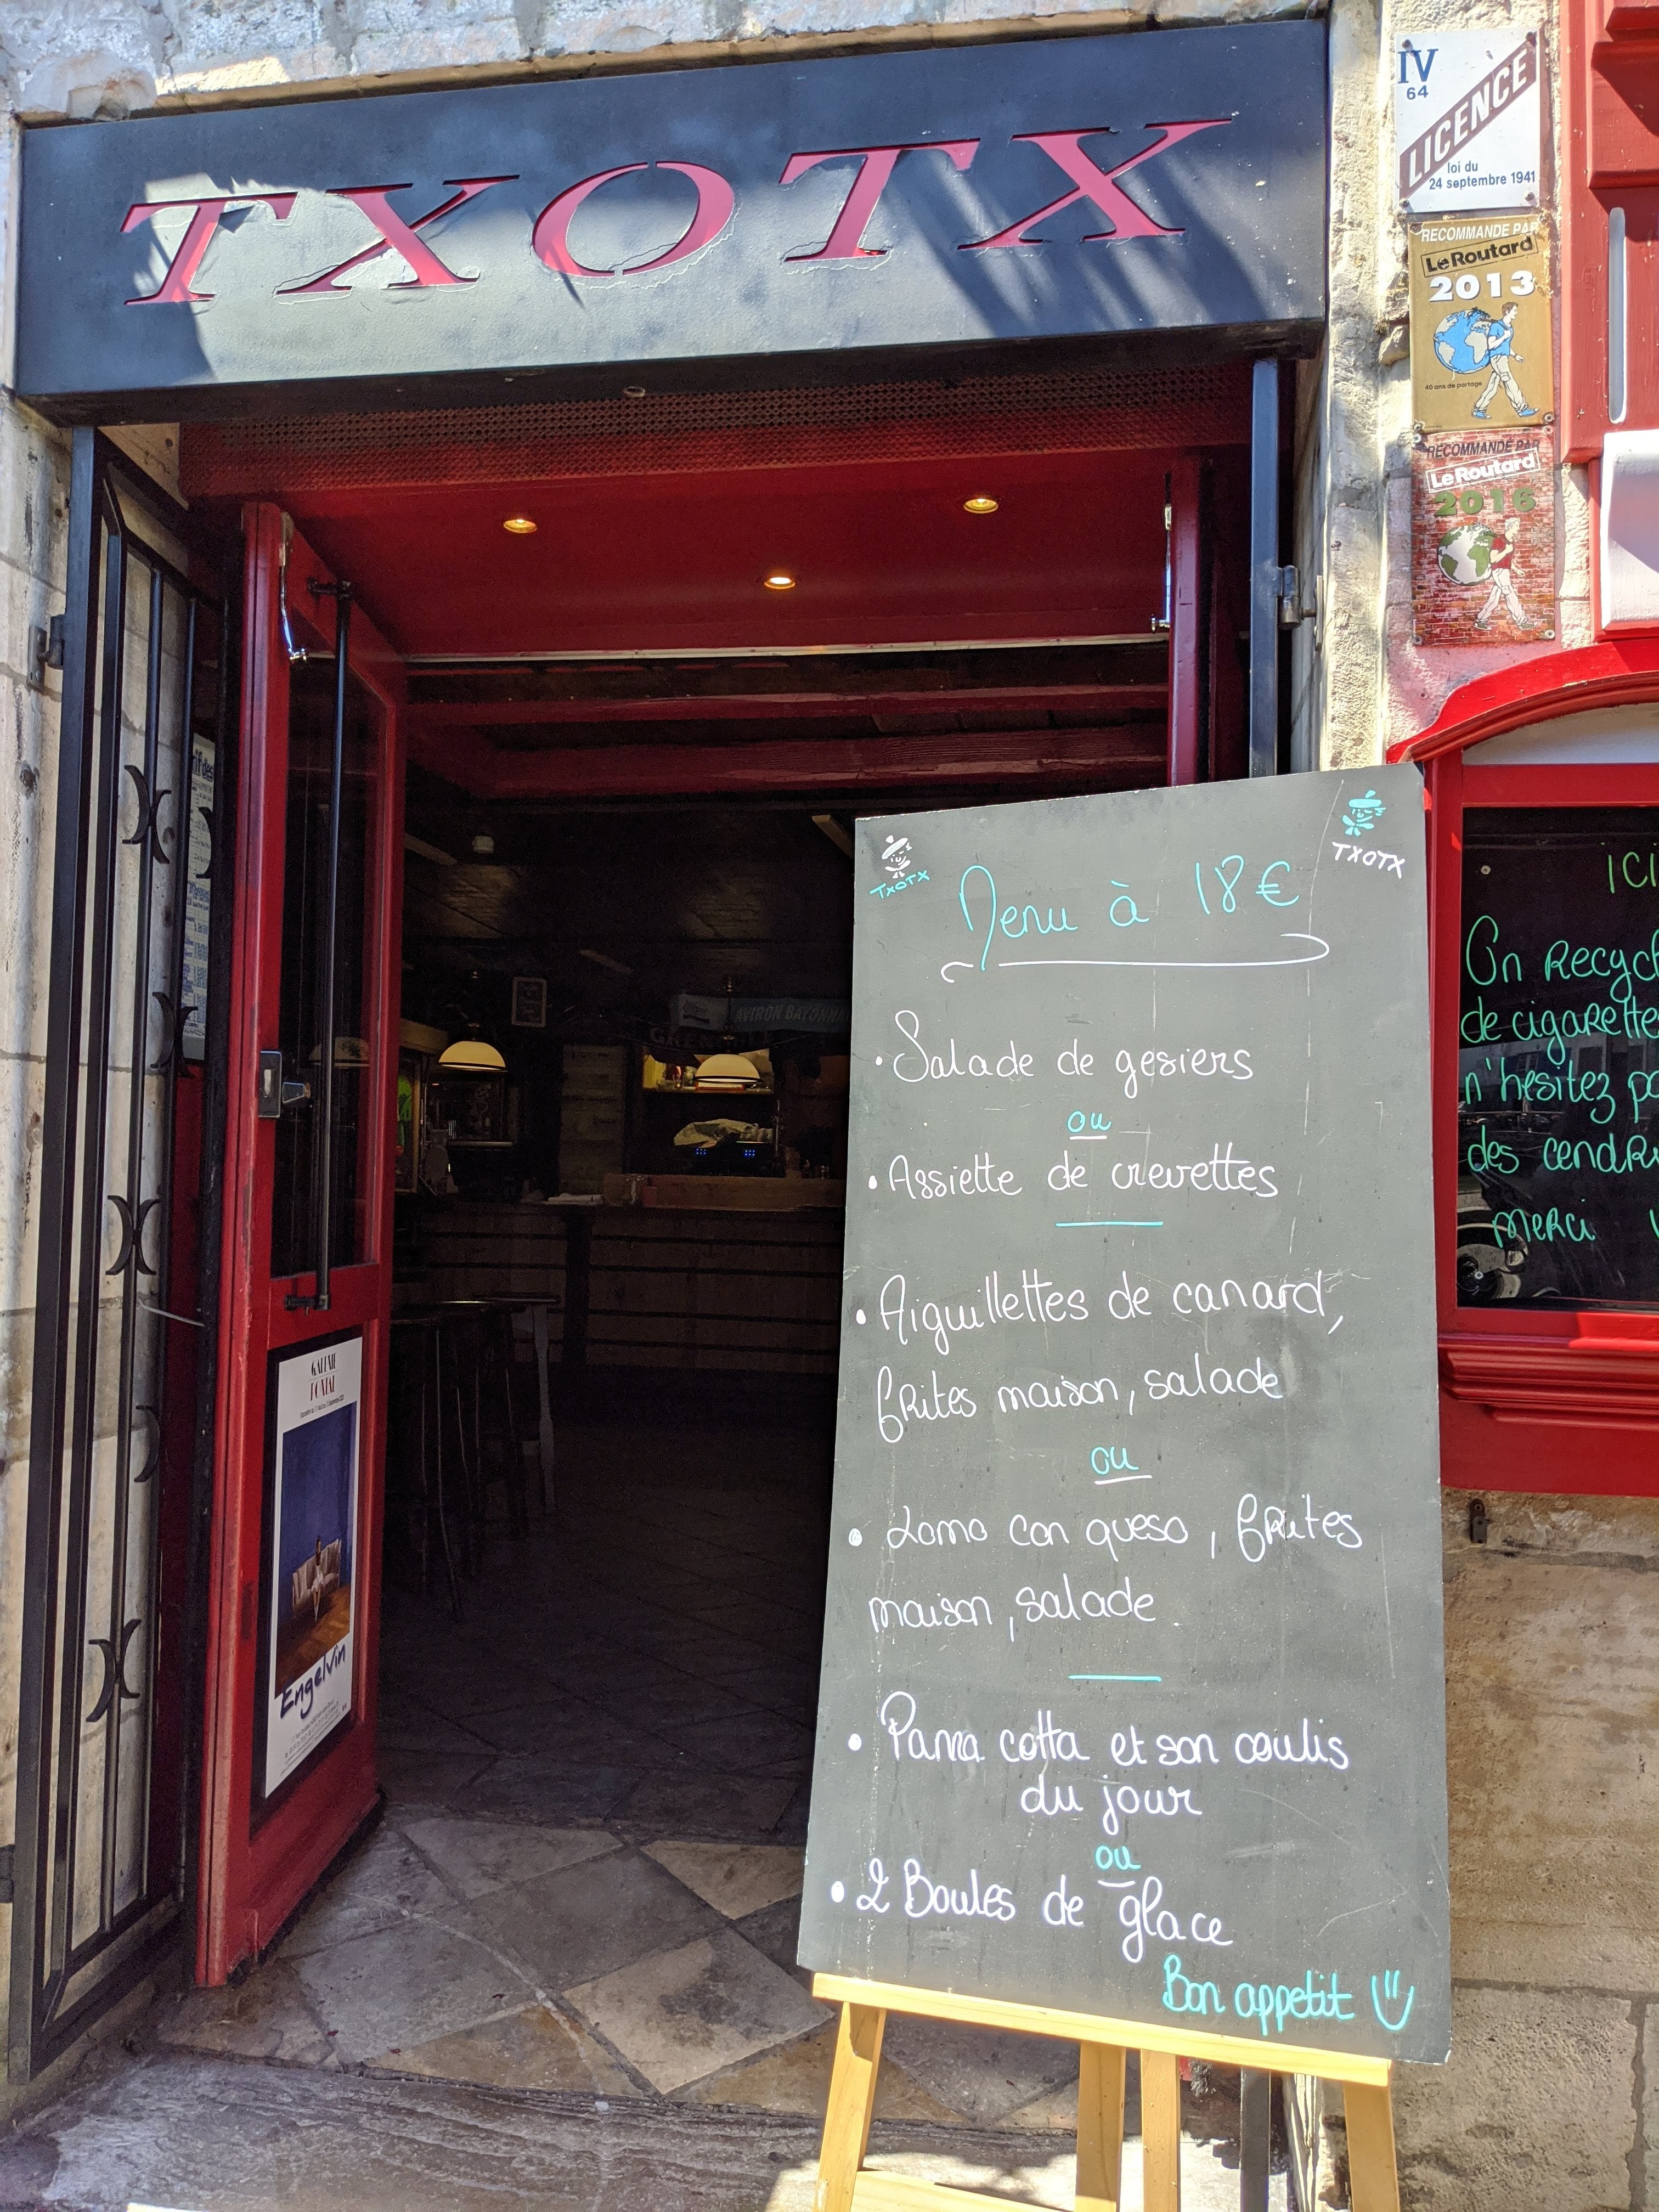 TXOTX
IV
64
LICENCE
loi du
24 septembre 1941
RECOMMANDÉ PAR
Le Routard
2013
40 ans de partage
RECOMMANDÉ PAR
Le Routard
2016
TXOTX
TXOTX
Menu à 18€
• Salade de gesiers
ou
• Assiette de crevettes
• Aiguillettes de canard,
frites maison, salade
ou
• Lomo con queso, frites
maison, salade
• Panna cotta et son coulis
du jour
ou
• 2 Boules de glace
Bon appetit
ICI
On Recycl
de cigarette
n'hesitez pa
des cendri
Merci
AVIRON BAYONNA
GALERIE
PONTAL
Engelvin